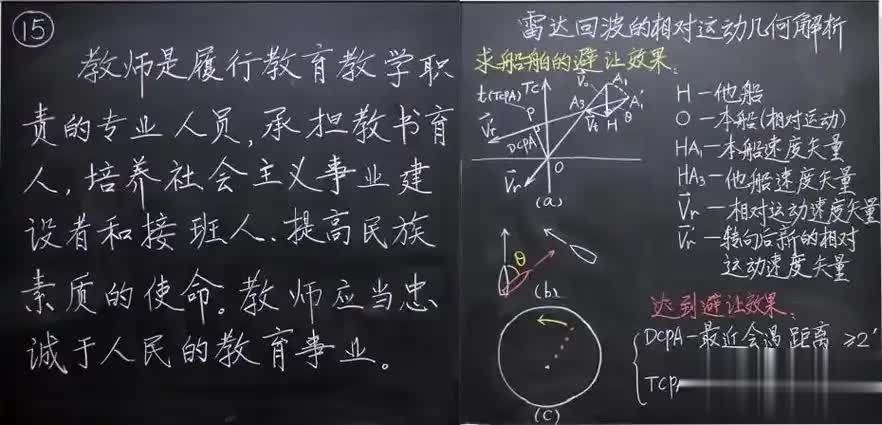 ⑮
教师是履行教育教学职
责的专业人员,承担教书育
人,培养社会主义事业建
设者和接班人、提高民族
素质的使命。教师应当忠
诚于人民的教育事业。
雷达回波的相对运动几何解析
求船舶的避让效果:
t(TCPA) TC
P
DCPA
Vr
Vr
O
Vo
A₁
A₃
A₁'
Vt
H
θ
(a)
θ
(b)
(c)
H—他船
O—本船(相对运动)
HA₁—本船速度矢量
HA₃—他船速度矢量
Vr—相对运动速度矢量
Vr'—转向后新的相对
运动速度矢量
达到避让效果:
DCPA—最近会遇距离 ≥2'
TCP